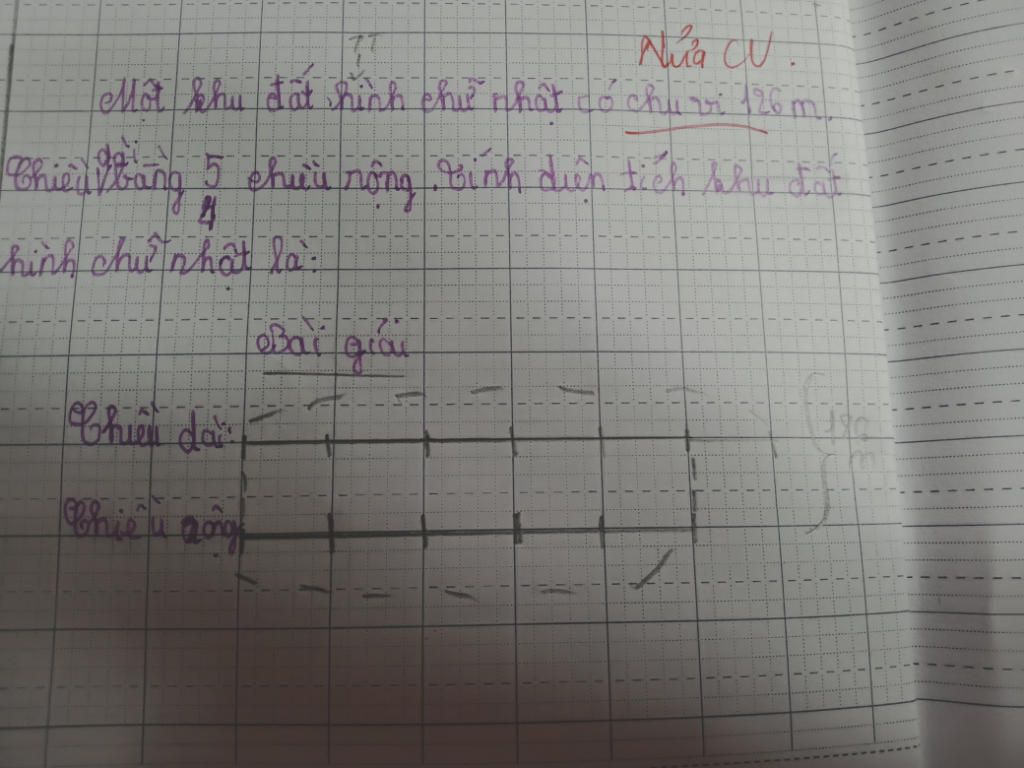 Nửa CV.
Một khu đất hình chữ nhật có chu vi 126 m.
Chiều dài bằng 5/4 chiều rộng. Tính diện tích khu đất
hình chữ nhật là:
Bài giải
Chiều dài:
Chiều rộng: